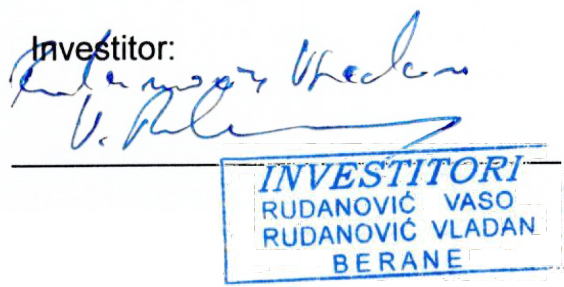 Investitor:
Rudanović Vladan
V. Rudanović
INVESTITORI
RUDANOVIĆ VASO
RUDANOVIĆ VLADAN
BERANE